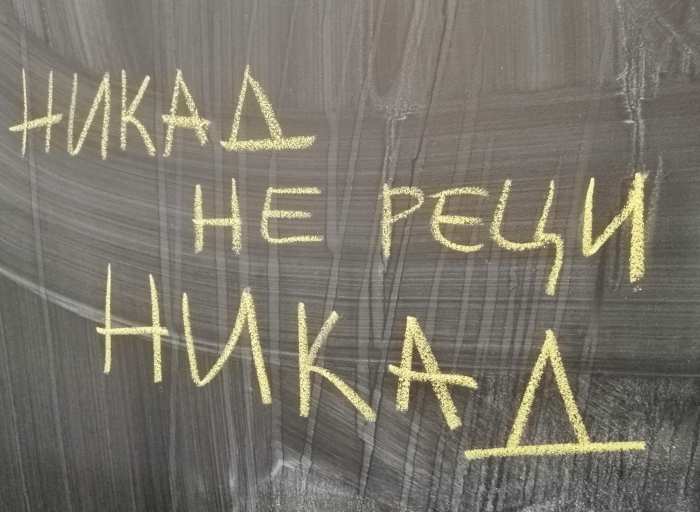 НИКАД
НЕ РЕЦИ
НИКАД